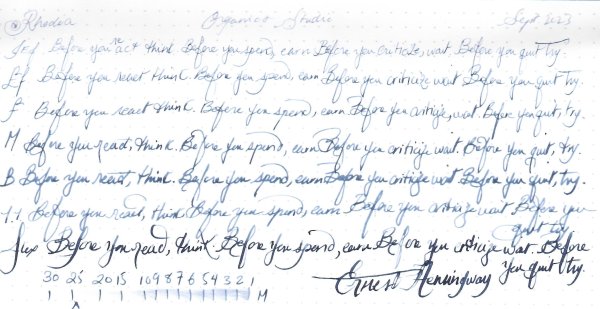 @Rhodia Organics Studio Sept 2023
Before you react think Before you spend, earn Before you criticize, wait. Before you quit try.
Ef Before you react think. Before you spend, earn Before you criticize wait Before you quit try.
F Before you react think. Before you spend, earn Before you criticize, wait. Before you quit, try.
M Before you react, think. Before you spend, earn Before you criticize wait. Before you quit, try.
B Before you react, think. Before you spend, earn Before you criticize wait Before you quit, try.
1.1 Before you react, think Before you spend, earn Before you criticize wait Before you
quit try
flex Before you read, think. Before you spend, earn Before you criticize wait. Before
you quit try.
30 25 20 15 10 9 8 7 6 5 4 3 2 1
M
Ernest Hemingway